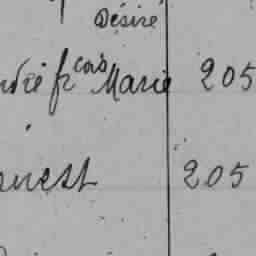 Désiré
ndré fr çois Marie 205
nest 205